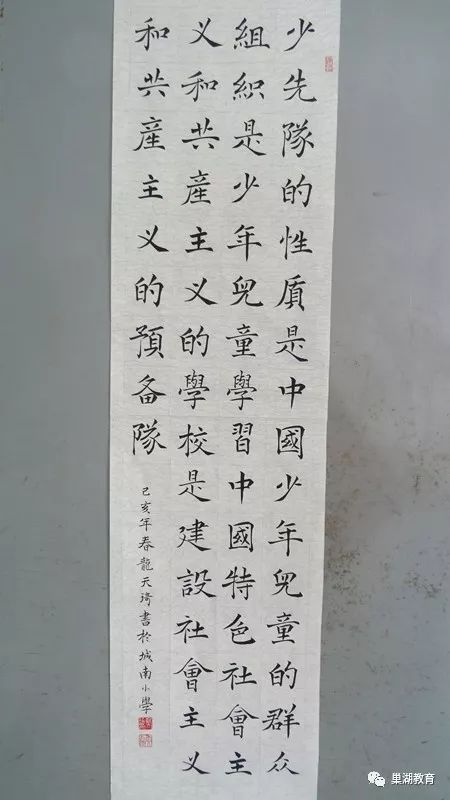 少先隊的性質是中國少年兒童的群众
組織是少年兒童學習中國特色社會主
义和共產主义的學校是建設社會主义
和共產主义的預备隊
己亥年春龍天琦書於城南小學
巢湖教育